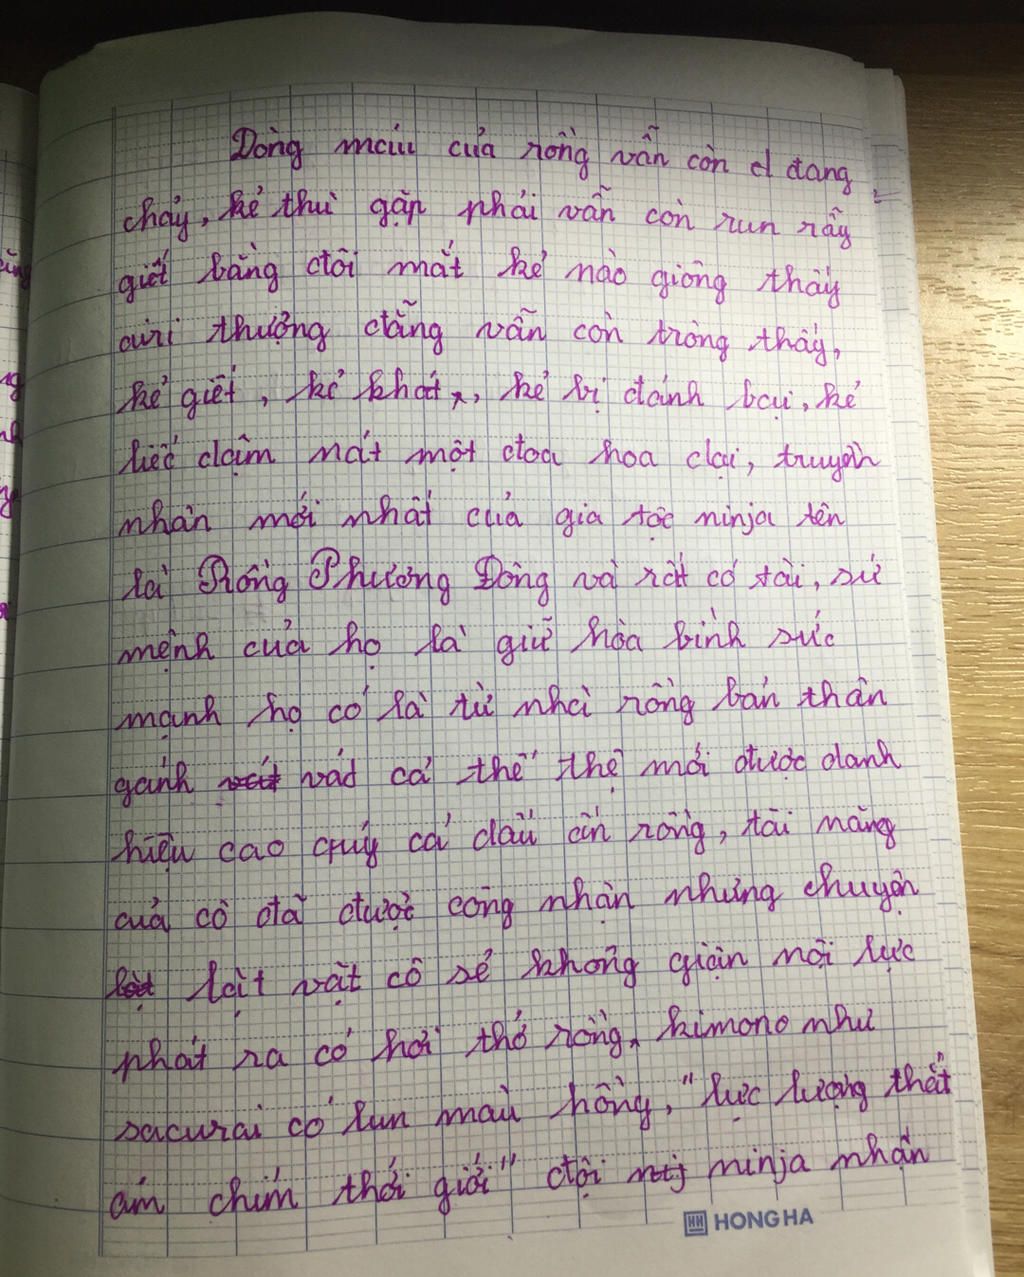 Dòng máu của rồng vẫn còn đ đang
chảy, kẻ thù gặp phải vẫn còn run rẩy
giết bằng đôi mắt kẻ nào giông thấy
cưri thượng đẳng vẫn còn tròng thấy,
kẻ giết, kẻ khát, kẻ bị đánh bại, kẻ
liếc dậm nát một đoá hoa dại, truyền
nhân mới nhất của gia tộc ninja tên
là Rồng Phương Đông và rất có tài, sứ
mệnh của họ là giữ hòa bình sức
mạnh họ có là từ nhà rồng bản thân
gánh vác cả thế thệ mới được danh
hiệu cao quý cả dấu ấn rồng, tài năng
của cô đã được công nhận nhưng chuyện
lặt vặt cô sẻ không giận nội lực
phát ra có hơi thở rồng, kimono như
sacurai có lun màu hồng, "lực lượng thắt
ám chím thới giới" đội ninja nhận
HONG HA